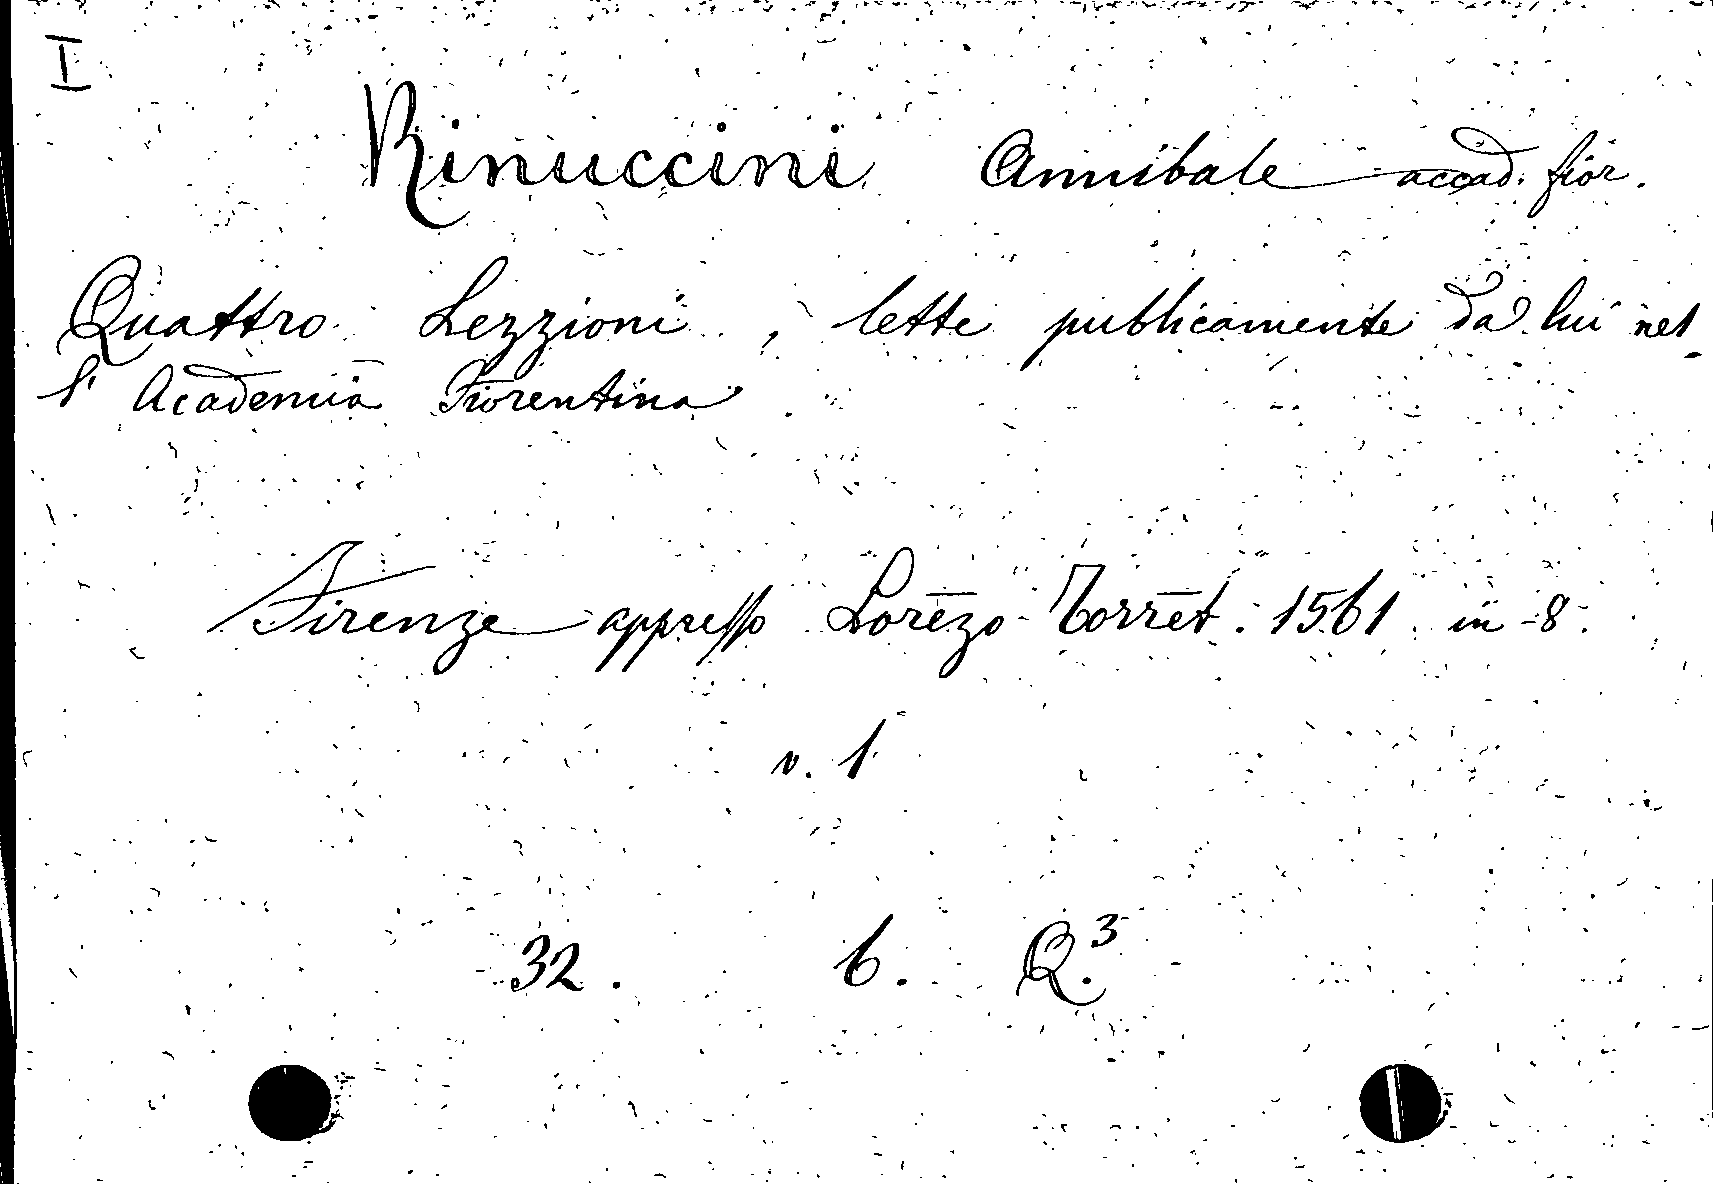 I
Rinuccini Annibale accad. fior.
Quattro Lezzioni, lette publicamente da lui nel
l' Academia Fiorentina
Firenze appresso Lorēzo Torrēt. 1561 in 8.
v. 1
32. 6. Q.³